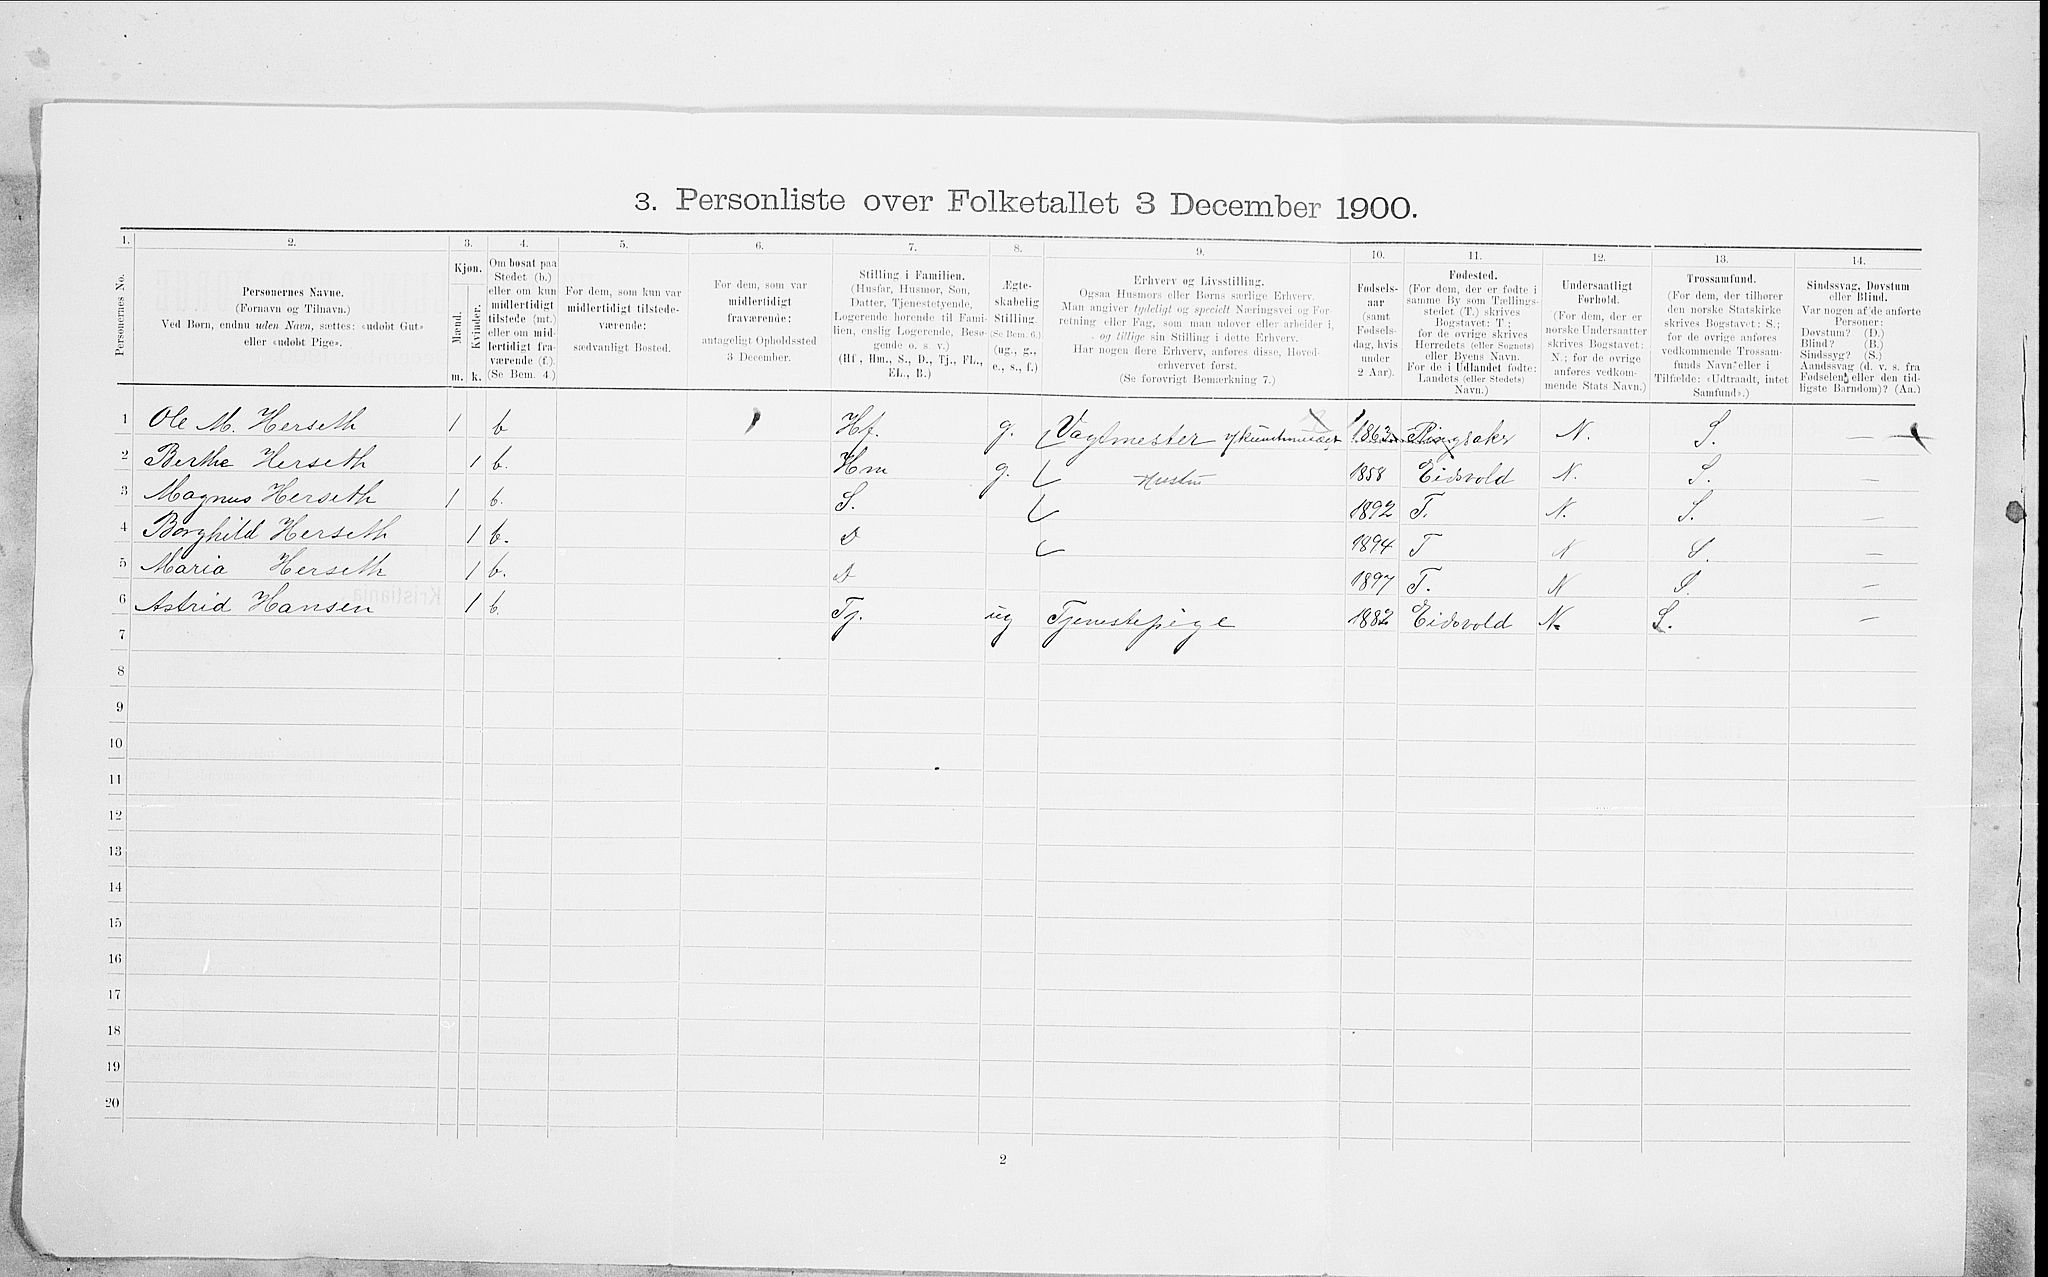 3. Personliste over Folketallet 3 December 1900.
1. 2. 3. 4. 5. 6. 7. 8. 9. 10. 11. 12. 13. 14.
Personernes No.
Personernes Navne.
(Fornavn og Tilnavn.)
Ved Børn, endnu uden Navn, sættes: «udøbt Gut»
eller «udøbt Pige».
Kjøn.
Mænd.
Kvinder.
m. k.
Om bosat paa
Stedet (b.)
eller om kun
midlertidigt
tilstede (mt.)
eller om mid-
lertidigt fra-
værende (f.).
(Se Bem. 4.)
For dem, som kun var
midlertidigt tilstede-
værende:
sædvanligt Bosted.
For dem, som var
midlertidigt
fraværende:
antageligt Opholdssted
3 December.
Stilling i Familien.
(Husfar, Husmor, Søn,
Datter, Tjenestetyende,
Logerende hørende til Fami-
lien, enslig Logerende, Besø-
gende o. s. v.)
(Hf., Hm., S., D., Tj., FL.,
EL., B.)
Ægte-
skabelig
Stilling.
(Se Bem. 6.)
(ug., g.,
e., s., f.)
Erhverv og Livsstilling.
Ogsaa Husmors eller Børns særlige Erhverv.
Man angiver tydeligt og specielt Næringsvei og For-
retning eller Fag, som man udøver eller arbeider i,
og tillige sin Stilling i dette Erhverv.
Har nogen flere Erhverv, anføres disse, Hoved-
erhvervet først.
(Se forøvrigt Bemærkning 7.)
Fødsels-
aar
(samt
Fødsels-
dag, hvis
under
2 Aar).
Fødested.
(For dem, der er fødte i
samme By som Tællings-
stedet (T.) skrives
Bogstavet: T;
for de øvrige skrives
Herredets (eller Sognets)
eller Byens Navn.
For de i Udlandet fødte:
Landets (eller Stedets)
Navn.)
Undersaatligt
Forhold.
(For dem, der er
norske Undersaatter
skrives Bogstavet:
N.; for de øvrige
anføres vedkom-
mende Stats Navn.)
Trossamfund.
(For dem, der tilhører
den norske Statskirke
skrives Bogstavet: S.;
for de øvrige anføres
vedkommende Trossam-
funds Navn eller i
Tilfælde: «Udtraadt, intet
Samfund».)
Sindssvag, Døvstum
eller Blind.
Var nogen af de anførte
Personer:
Døvstum? (D.)
Blind? (B.)
Sindssyg? (S.)
Aandssvag (d. v. s. fra
Fødselen eller den tid-
ligste Barndom)? (Aa.)
1 Ole M. Herseth 1 b Hf. g. Vagtmester 1863 Ringsaker N. S. —
2 Berthe Herseth 1 b. Hm g. Hustru 1858 Eidsvold N. S. —
3 Magnus Herseth 1 b. S. 1892 T. N. S. —
4 Borghild Herseth 1 b. D 1894 T N S. —
5 Maria Herseth 1 b. D 1897 T. N S. —
6 Astrid Hansen 1 b. Tj. ug Tjenestepige 1882 Eidsvold N. S. —
7
8
9
10
11
12
13
14
15
16
17
18
19
20
2